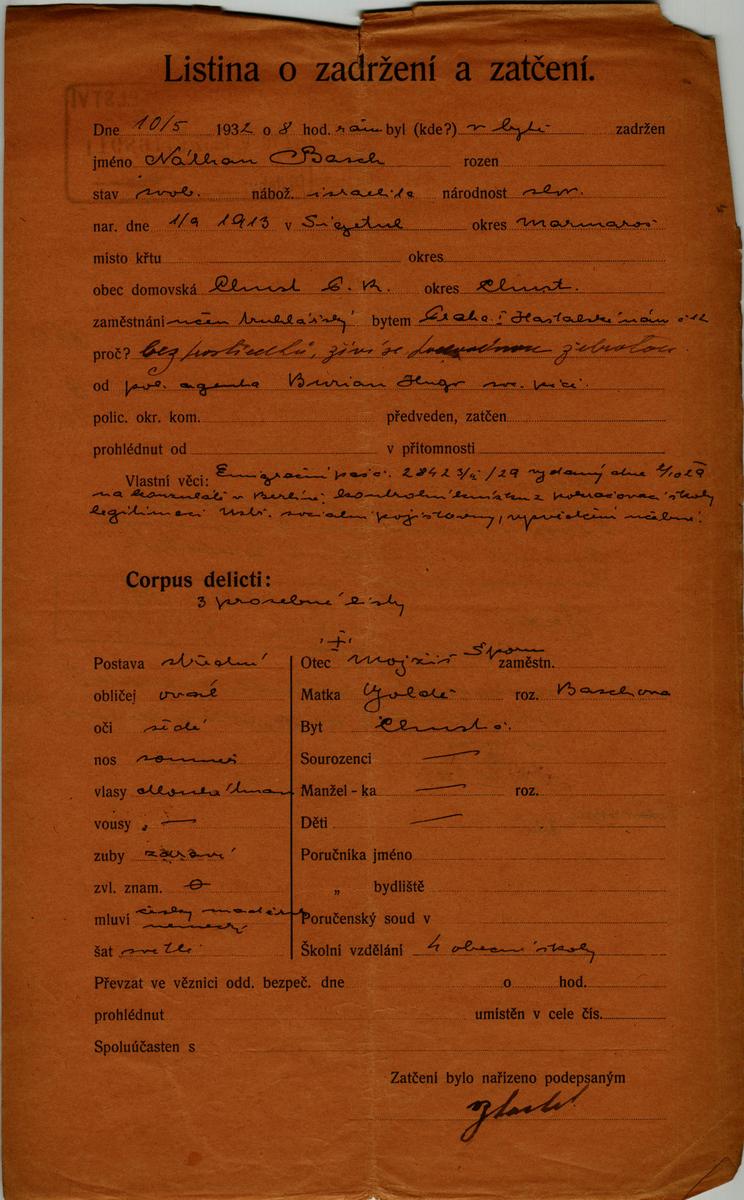 Listina o zadržení a zatčení.
Dne 10/5 1932 o 8 hod. ráno byl (kde?) v bytě zadržen
jméno Náthan Basch rozen
stav svob. nábož. israelita národnost slov.
nar. dne 1/9 1913 v Sigetul okres Marmaroš
místo křtu okres
obec domovská Chust P. R. okres Chust.
zaměstnání učeň truhlářský bytem Praha I Haštalské nám
proč? bez prostředků, živí se podvodnou žebrotou
od pol. agenta Burian Hugo
polic. okr. kom. předveden, zatčen
prohlédnut od v přítomnosti
Vlastní věci: Emigrační pas č. 28423/ /29 vydaný dne
na konsulátě v Berlíně. kontrolní z pokračovací školy
legitimaci Ústř. sociální pojišťovny, vysvědčení učební.
Corpus delicti:
3 prosebné listy
Postava střední
obličej ovál
oči šedé
nos
vlasy
vousy „ —
zuby zdravé
zvl. znam.
mluví česky maďar německy
šat světlé
Otec Mojžíš Sporn zaměstn.
Matka Golda roz. Baschova
Byt Chust
Sourozenci —
Manžel - ka — roz.
Děti —
Poručníka jméno
„ bydliště
Poručenský soud v
Školní vzdělání 4 obecné školy
Převzat ve věznici odd. bezpeč. dne o hod.
prohlédnut umístěn v cele čís.
Spoluúčasten s
Zatčení bylo nařízeno podepsaným